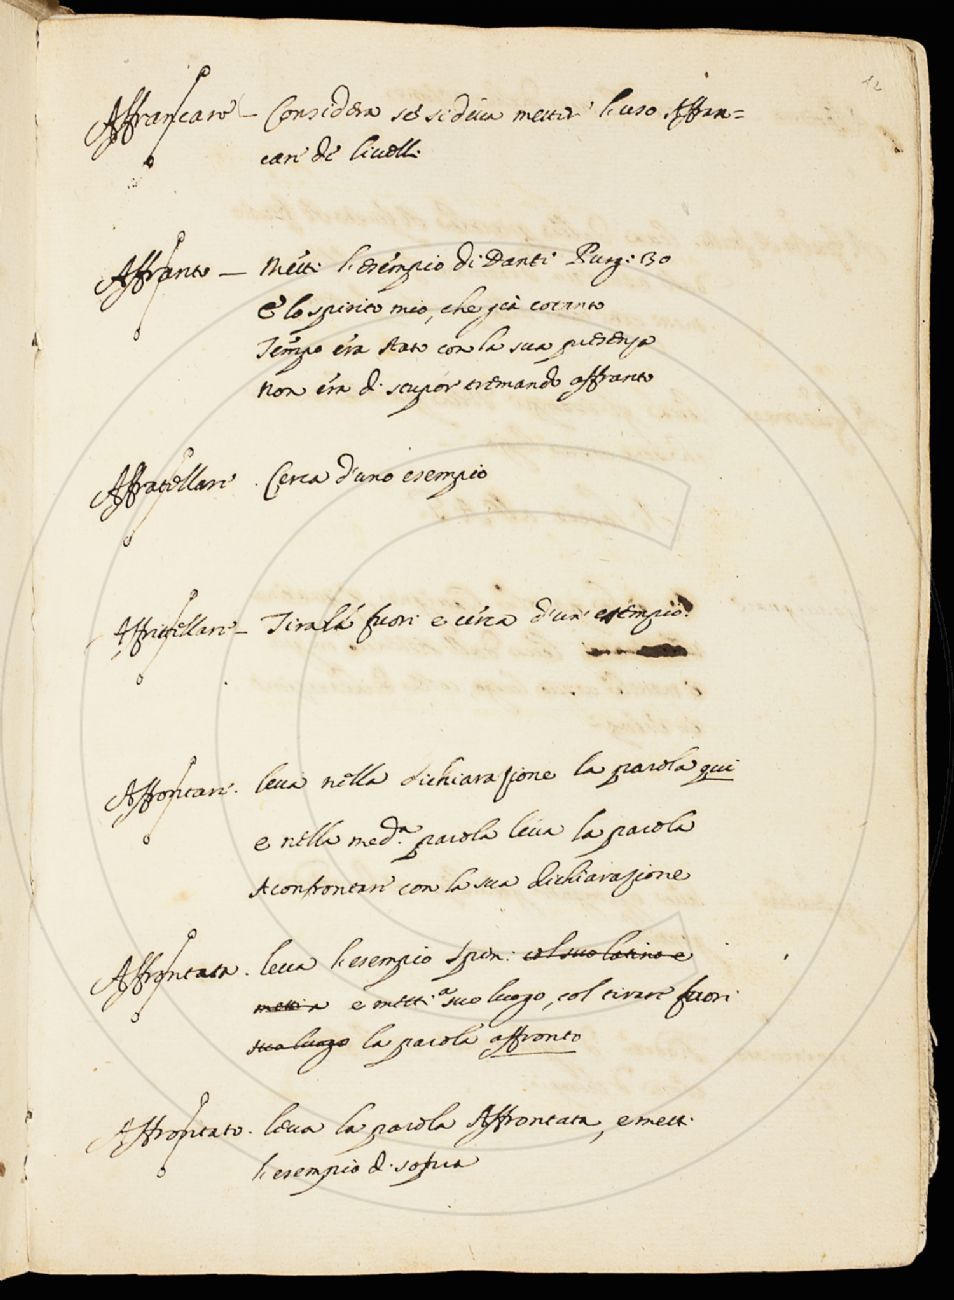 12
Affrancare - Considera se si deva metter l'uso Affran=
car de livelli
Affranto - Metti l'esempio di Dante Purg: 30
E lo spirito mio, che già cotanto
Tempo era stato con la sua presenza
Non era di stupor tremando affranto
Affratellare Cerca d'uno esempio
Affritellare - Tirala fuori e cerca d'un esempio
Affrontare. leva nella dichiarazione la parola qui
e nella med.a parola leva la parola
Aconfrontare con la sua dichiarazione
Affrontata. leva l'esempio Spin: col suo latino e
metti a e metti a suo luogo, col tirare fuori
suo luogo la parola affronto
Affrontato. leva la parola Affrontata, e metti
l'esempio di sopra